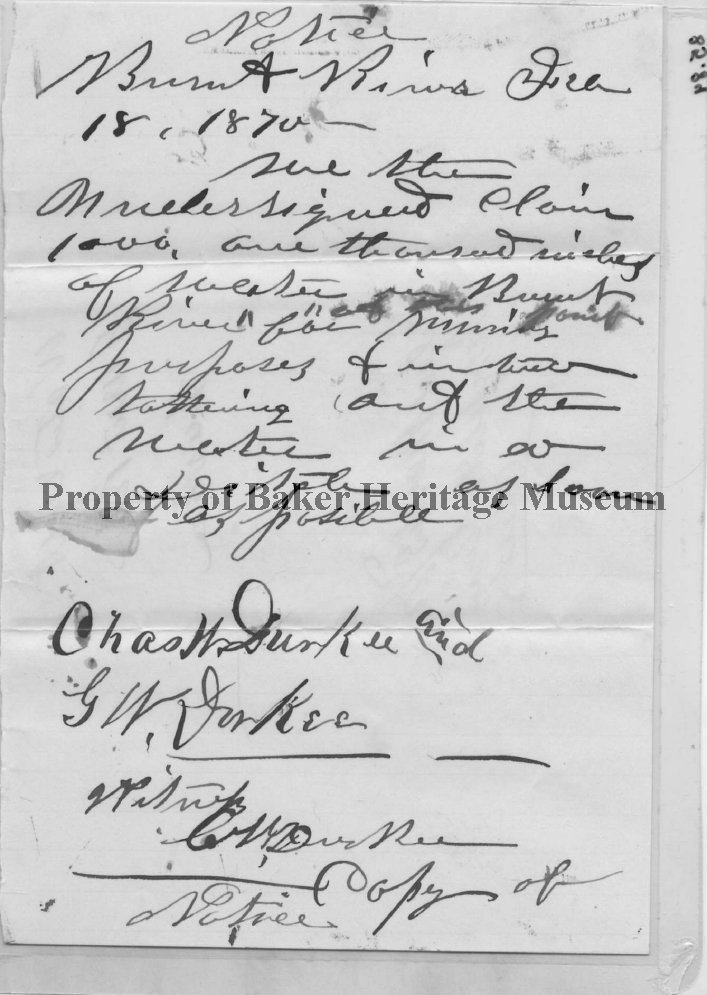 Notice
Burnt River
18, 1870 —
we the
undersigned Claim
1000, one thousand inches
of water in Burnt
River" for mining
purposes & 
and the
water in a
Ditch as soon
as posible
Property of Baker Heritage Museum
Chas W Durkee and
G W, Durkee
Witness
C W Durkee
Copy of
Notice
85.84